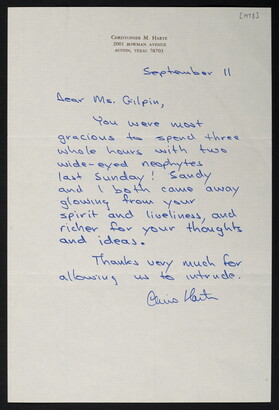 [MTB]
CHRISTOPHER M. HARTE
2001 BOWMAN AVENUE
AUSTIN, TEXAS 78703
September 11
Dear Ms. Gilpin,
You were most
gracious to spend three
whole hours with two
wide-eyed neophytes
last Sunday! Sandy
and I both came away
glowing from your
spirit and liveliness, and
richer for your thoughts
and ideas.
Thanks very much for
allowing us to intrude.
Chris Harte